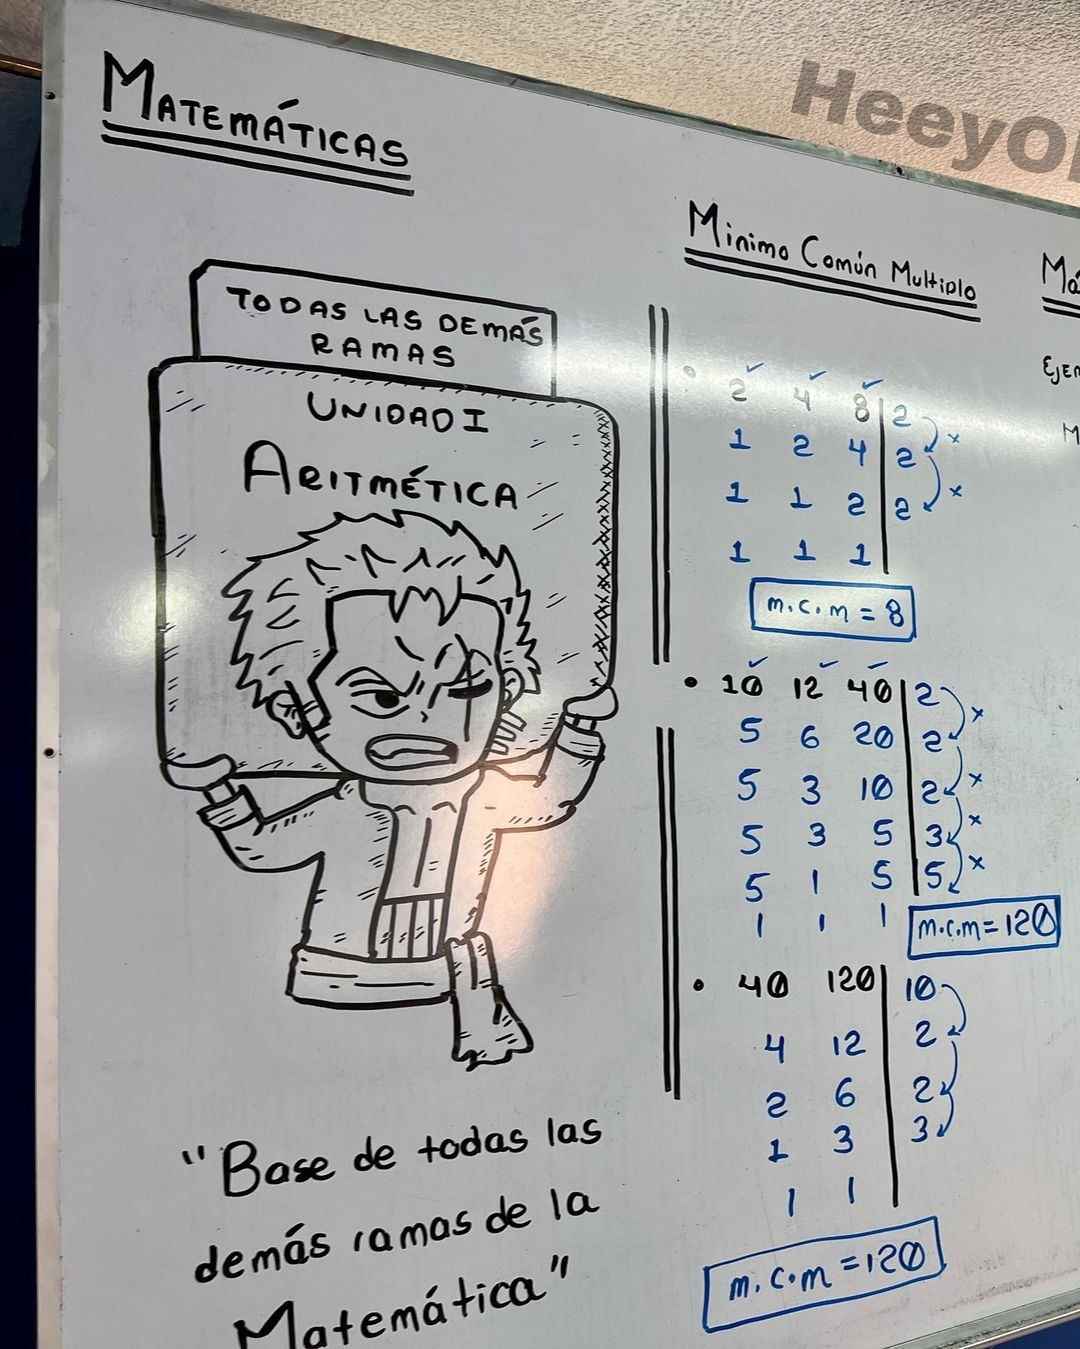 HeeyO
MATEMÁTICAS
TODAS LAS DEMÁS
RAMAS
UNIDAD I
ARITMÉTICA
"Base de todas las
demás ramas de la
Matemática"
Minimo Común Multiplo
2 4 8 2
1 2 4 2 x
1 1 2 2 x
1 1 1
m.c.m = 8
10 12 40 2
5 6 20 2 x
5 3 10 2 x
5 3 5 3 x
5 1 5 5 x
1 1 1
m.c.m = 120
40 120 10
4 12 2
2 6 2
1 3 3
1 1
m.c.m = 120
Má
EJEM
M